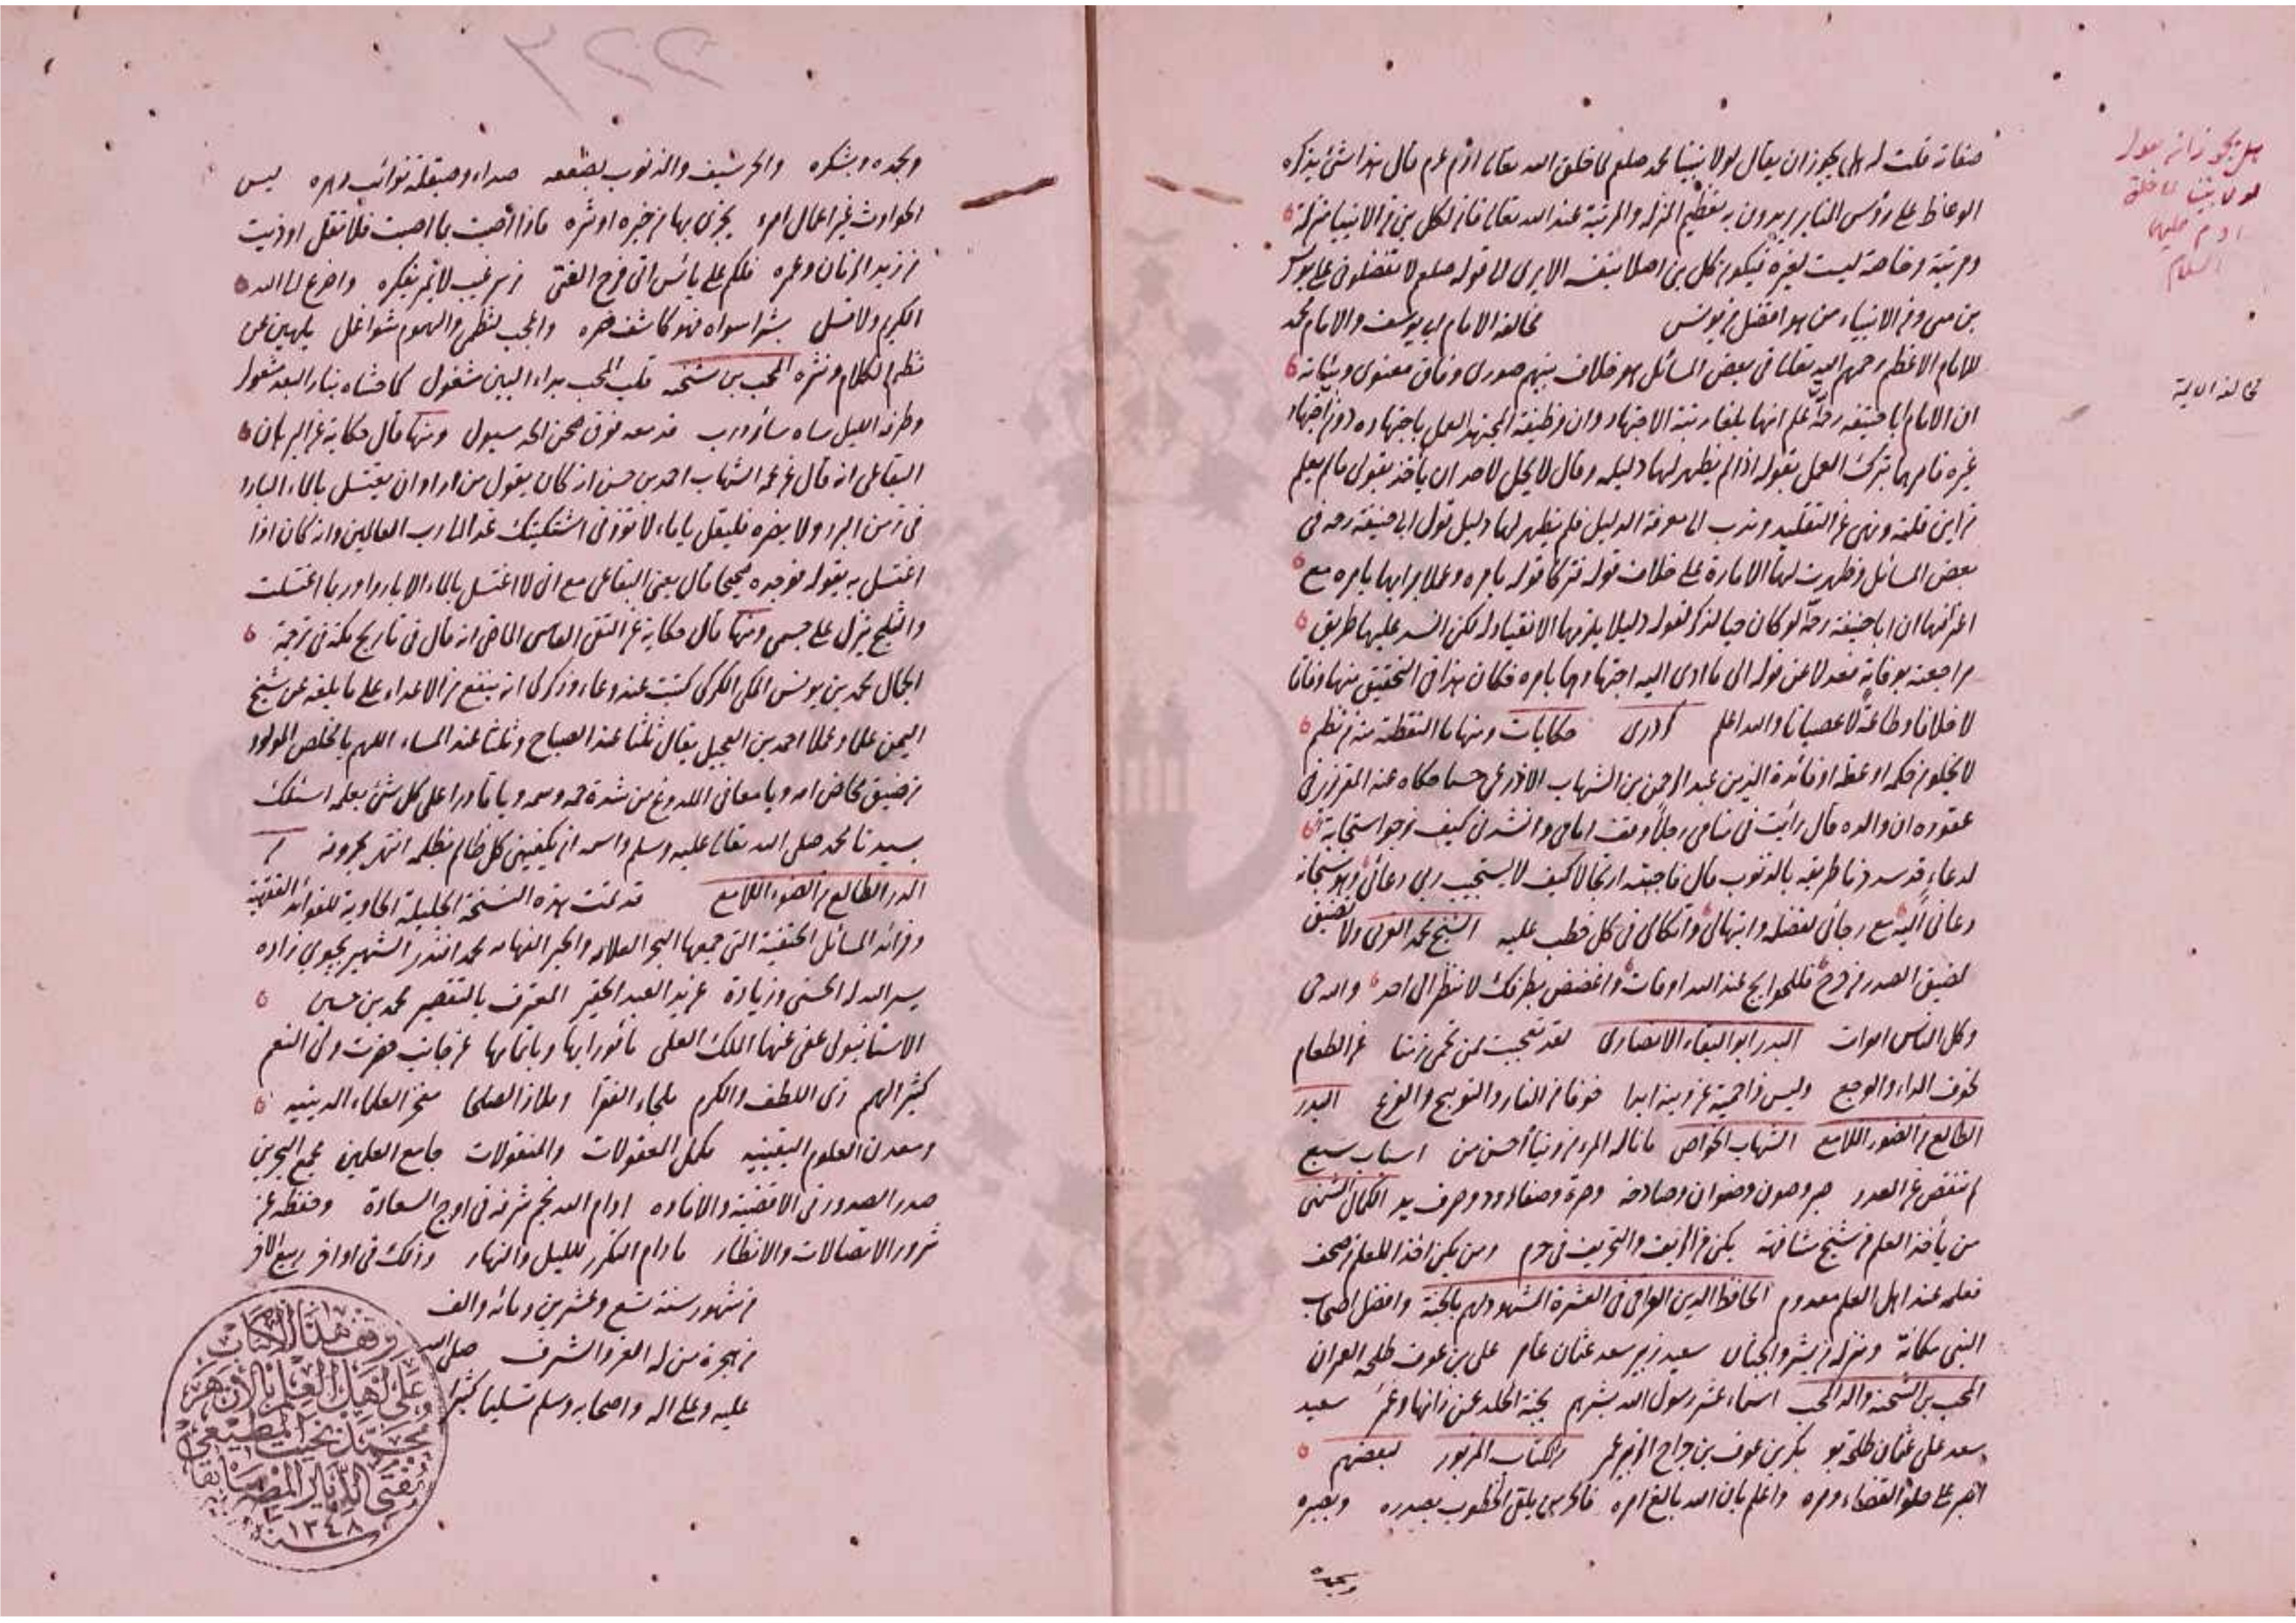 صفاته قلت له هل يجوز ان يقال لولا نبينا محمد صلعم لما خلق الله تعالى ادم عم قال هذا شئ يذكره
الوعاظ على رؤس المنابر يريدون به تعظيم المنزلة والمرتبة عند الله تعالى فان لكل بنى من الانبيا منزلة
ومرتبة وخاصة ليست لغيره فيكون كل بنى اصلا بنفسه الا يرى لما قوله صلعم لا تفضلونى على يونس
بن متى وفى الانبياء من هو افضل من يونس مخالفة الامام ابى يوسف والامام محمد
للامام الاعظم رحمهم الله تعالى فى بعض المسائل هو خلاف بينهم صورى وفاق معنوى وبيانه
ان الامام ابا حنيفه رحمه علم انهما بلغا رتبة الاجتهاد وان وظيفة المجتهد العمل باجتهاده دون اجتهاد
غيره فامرهما بترك العمل بقوله اذا لم يظهر لهما دليله وقال لا يحل لاحد ان ياخذ بقولى ما لم يعلم
من اين قلته ونهى عن التقليد وندب الى معرفة الدليل فلم يظهر لهما دليل قول ابى حنيفة رحه فى
بعض المسائل وظهرت لهما الامارة على خلاف قوله فتركا قوله بامره وعملا برايهما بامره مع
اعترافهما ان ابا حنيفة رحه لو كان حيا لذكر لقوله دليلا يلزمهما الانقياد له لكن انسد عليهما طريق
مراجعته بوفاته فعدلا عن قوله الى ما ادى اليه اجتهادهما بامره فكان هذا فى التحقيق منهما وفاقا
لا خلافا وطاعة لا عصيانا والله اعلم كردرى حكايات ومنها ما التقطته من نظم
لا يخلو من حكمة او عظة او فائدة الدين عبد الرحمن بن الشهاب الاذرعى حسبما حكاه عنه المقريزى فى
عقوده ان والده قال رايت فى منامى رجلا وقف امامى وانشدنى كيف نرجو استجابة
لدعاء قد سددنا طريقه بالذنوب قال فاجبته ارتجالا كيف لا يستجيب ربى دعائى وهو سبحانه
دعانى اليه مع رجائى لفضله وابتهالى واتكالى فى كل خطب عليه الشيخ محمد الغزى ولا تضيق
لضيق الصدر من حرج فللحوايج عند الله اوقات واغضض بطرفك لا تنظر الى احد والله حى
وكل الناس اموات البدر ابو البقاء الانصارى لقد تعجبت لمن تحمى زمنا عن الطعام
لخوف الداء والوجع وليس ذا حمية عن ذنبه ابدا خوفا من النار والتوبيخ والفزع البدر
الطالع من الضوء اللامع الشهاب الخواص ما ناله المرء من دنيا احسن من اسباب سبع
لم تنقص عن العدد بر وصون وضوان وصادحة وحرة وصفاء ودوحرف يد الكمال الشمنى
من يأخذ العلم من شيخ مشافهة يكن من الزيف والتحريف فى حرم ومن يكن اخذا للعلم من صحف
فعلمه عند اهل العلم معدوم الحافظ الدين العراقى فى العشرة المشهود لهم بالجنة وافضل اصحاب
النبى مكانة ومنزلة من بشروا بجنان سعيد زبير سعد عثمان عامر على بن عوف طلحة العمران
المحب بن الشحنة والد المحب اسماء عشر رسول الله بشرهم بجنة الخلد عمن زانها وعمر سعيد
سعد على عثمان طلحة بو بكر بن عوف بن جراح الزبير عمر من الكتاب المزبور لبعضهم
اصبر على حلو القضاء ومره واعلم بان الله بالغ امره فالحر من يلقى الخطوب بصدره وبصبره
وبحمده
هل يجوز ان يقول
لولا نبينا لما خلق
ادم عليهما
السلام
مخالفة الائمة
٢٢٢
وبحمده وبشكره والحر سيف والذنوب بصفحه صداء وصيقله نوائب دهره ليس
الحوادث غير اعمال امرء يجزى بها من خيره او شره فاذا اصبت بما اصبت فلا تقل اوذيت
من زيد الزمان وعمره فلكم على يائس اتى فرج الفتى من سر غيب لا تمر بفكره واضرع الى الله
الكريم ولا تسل بشرا سواه فهو كاشف ضره واعجب لنظمى والهموم شواغل يلهين عن
نظم الكلام ونثره المحب بن شحنه قلب المحب بداء البين مشغول كما حشاه بنار البعد مشغول
وطرفه الليل ساه ساهر ودرب فدمعه فوق صحن الخد مسبول ومنها قال حكاية عن البرهان
البقاعى انه قال عن عمه الشهاب احمد بن حسن انه كان يقول من اراد ان يغتسل بالماء البارد
فى زمن البرد ولا يضره فليقل يا ماء لا توذنى اشتكيتك غدا الى رب العالمين وانه كان اذا
اغتسل به يقوله فوجده صحيحا قال يعنى البقاعى مع انى لا اغتسل بالماء الا باردا وربما اغتسلت
والثلج ينزل على جسمى ومنها قال حكاية عن التقى الفاسى الماضى انه قال فى تاريخ مكة فى ترجمة
الجمال محمد بن يونس المكى الكركى كتبت عنه دعاء وذكر لى انه ينفع من الاعداء على ما بلغه عن شيخ
اليمن علما وعملا احمد بن العجيل يقال ثلثا عند الصباح وثلثا عند المساء اللهم يا مخلص المولود
من ضيق مخاض امه ويا معافى الملدوغ من شدة حمه وسمه ويا قادرا على كل شئ بعلمه اسئلك
بسيدنا محمد صلى الله تعالى عليه وسلم واسمه ان تكفينى كل ظالم بظلمه انتهى بحروفه من
البدر الطالع من الضوء اللامع قد تمت هذه النسخة الجليلة الحاوية للفوائد الفقهية
وفرائد المسائل الحنفية التى جمعها البحر العلامه والحبر الفهامه محمد افندى الشهير بجيوى زاده
يسر الله له الحسنى وزيادة عن يد العبد الحقير المعترف بالتقصير محمد بن حسين
الاستانبولى عفى عنهما الملك العلى مأمورا بها وباتمامها عن جانب حضرت ولى النعم
كثير الهمم ذى اللطف والكرم ملجاء الفقرا وملاذ الصلحا مفخر العلماء الدينيه
ومعدن العلوم اليقينيه مكمل المعقولات والمنقولات جامع العلمين مجمع البحرين
صدر الصدور فى الاقضية والافاده ادام الله نجم شرفه فى اوج السعادة وحفظه عن
شرور الاتصالات والانظار ما دام التكرر لليل والنهار وذلك فى اواخر ربيع الاخر
من شهور سنة تسع وعشرين ومائه والف
من هجرة من له العز والشرف صلى الله
عليه وعلى اله واصحابه وسلم تسليما كثيرا
وقف هذا الكتاب
على اهل العلم بالازهر
محمد بخيت المطيعى
مفتى الديار المصرية سابقا
سنة ١٣٤٨